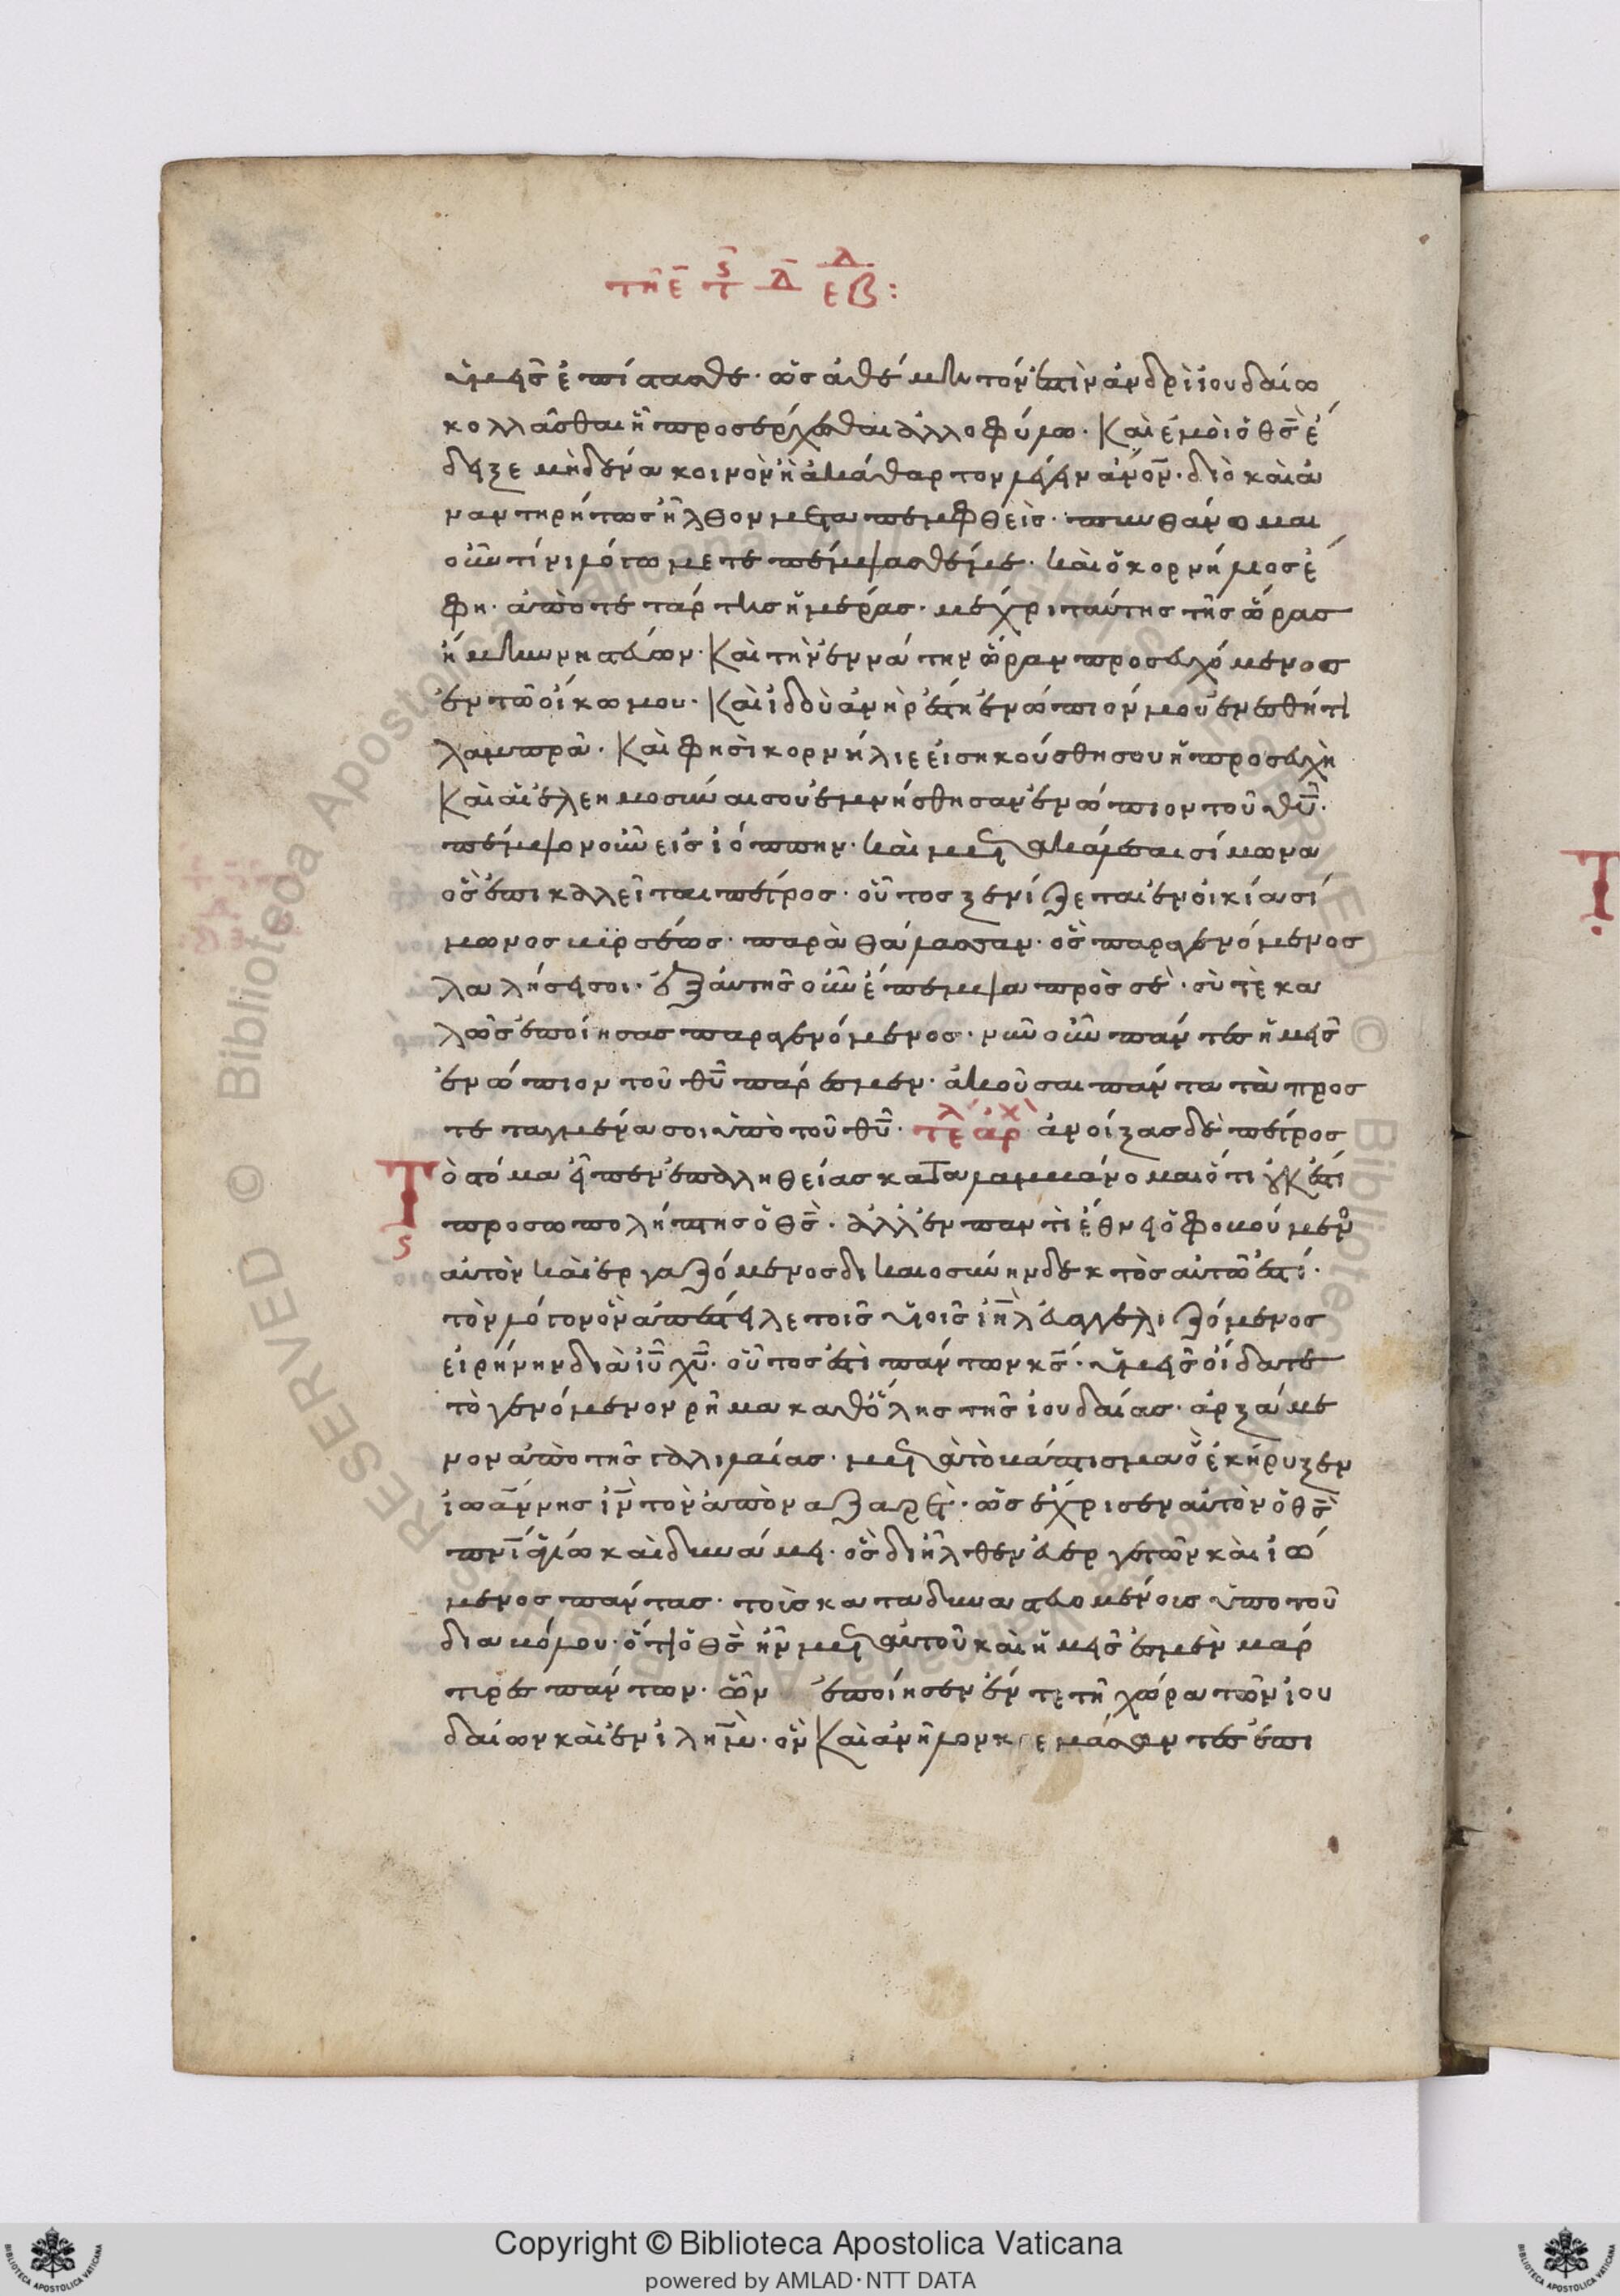 τῆ ε̄ ϛ̄ τ Δ̄ εβ Δ :
ὑμεῖς ἐπίστασθε· ὡς ἀθέμητόν ἐστιν ἀνδρὶ ἰουδαίω
κολλᾶσθαι ἢ προσέρχεσθαι ἀλλοφύλω· καὶ ἐμοὶ ὁ θ̅ς̅ ἔ
δειξε μηδένα κοινὸν ἢ ἀκάθαρτον λέγειν ἄνον· διὸ καὶ ἀ
ναντηρήτως ἦλθον μεταπεμφθεὶς· πυνθάνομαι
οὖν τίνι λόγω μετεπέμψασθέ με· καὶ ὁ κορνήλιος ἔ
φη· ἀπὸ τετάρτης ἡμέρας· μέχρι ταύτης τῆς ὥρας
ἤμην νηστεύων· καὶ τὴν ἐννάτην ὥραν προσευχόμενος
ἐν τῶ οἴκω μου· καὶ ἰδοὺ ἀνὴρ ἔστη ἐνώπιόν μου ἐν ἐσθῆτι
λαμπρᾶ· καὶ φησὶ κορνήλιε εἰσηκούσθη σου ἡ προσευχὴ
καὶ αἱ ἐλεημοσύναι σου ἐμνήσθησαν ἐνώπιον τοῦ θ̅υ̅·
πέμψον οὖν εἰς ἰόππην· καὶ μετακάλεσαι σίμωνα
ὃς ἐπικαλεῖται πέτρος· οὗτος ξενίζεται ἐν οἰκία σί
μωνος βυρσέως· παρὰ θάλασσαν· ὃς παραγενόμενος
λαλήσει σοι· ἐξαυτῆς οὖν ἔπεμψα πρὸς σὲ· σύ τε κα
λῶς ἐποίησας παραγενόμενος· νῦν οὖν πάντες ἡμεῖς
ἐνώπιον τοῦ θ̅υ̅ πάρεσμεν· ἀκοῦσαι πάντα τὰ προς
τεταγμένα σοι ὑπὸ τοῦ θ̅υ̅· τελ ἀρχ ἀνοίξας δὲ πέτρος
Τὸ στόμα εἶπεν ἐπ ἀληθείας καταλαμβάνομαι ὅτι οὐκ ἔστι
ϛ προσωπολήπτης ὁ θ̅ς̅· ἀλλ ἐν παντὶ ἔθνει ὁ φοβούμενος
αὐτὸν καὶ ἐργαζόμενος δικαιοσύνην δεκτὸς αὐτῶ ἐστί·
τὸν λόγον ὃν ἀπέστειλε τοῖς υἱοῖς ι̅η̅λ̅ εὐαγγελιζόμενος
εἰρήνην διὰ ι̅υ̅ χ̅υ̅· οὗτός ἐστι πάντων κ̅ς̅· ὑμεῖς οἴδατε
τὸ γενόμενον ῥῆμα καθ ὅλης τῆς ἰουδαίας· ἀρξάμε
νον ἀπὸ τῆς γαλιλαίας· μετὰ τὸ βάπτισμα ὃ ἐκήρυξεν
ἰωάννης ι̅ν̅ τὸν ἀπὸ ναζαρὲτ· ὡς ἔχρισεν αὐτὸν ὁ θ̅ς̅
π̅ν̅ι̅ ἁγίω καὶ δυνάμει· ὃς διῆλθεν εὐεργετῶν καὶ ἰώ
μενος πάντας· τοὺς καταδυναστευομένοις ὑπὸ τοῦ
διαβόλου· ὅτι ὁ θ̅ς̅ ἦν μετ αὐτοῦ καὶ ἡμεῖς ἐσμὲν μάρ
τυρες πάντων· ὧν ἐποίησεν ἔν τε τῆ χώρα τῶν ἰου
δαίων καὶ ἐν ἱλημ· ὃν καὶ ἀνῆλον κρεμάσαντες ἐπι
Copyright © Biblioteca Apostolica Vaticana
powered by AMLAD·NTT DATA